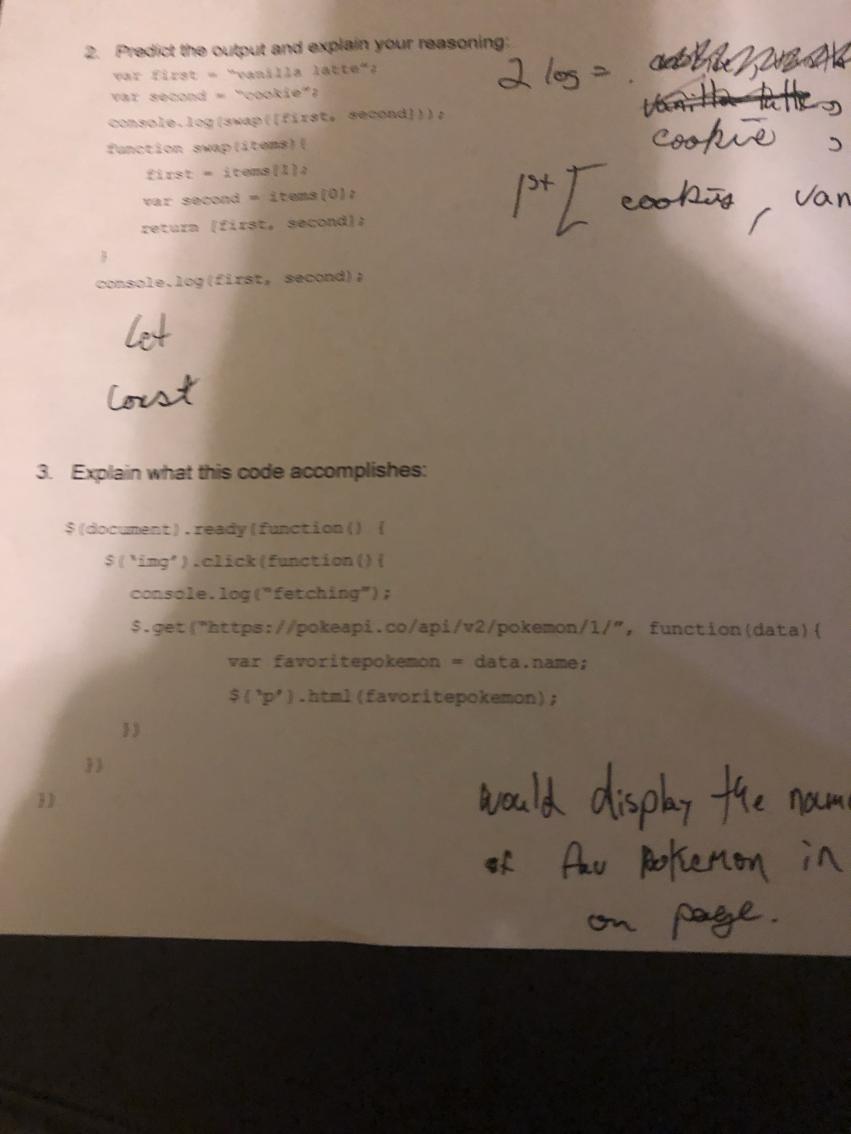 2. Predict the output and explain your reasoning:
var first = "vanilla latte";
var second = "cookie";
console.log(swap([first, second]));
function swap(items){
first = items[1];
var second = items[0];
return [first, second];
}
console.log(first, second);
2 log = .
vanilla latte,
cookie ,
1st [ cookie, van
Let
Const
3. Explain what this code accomplishes:
$(document).ready(function() {
$('img').click(function(){
console.log("fetching");
$.get("https://pokeapi.co/api/v2/pokemon/1/", function(data){
var favoritepokemon = data.name;
$('p').html(favoritepokemon);
})
})
})
would display the name
of fav pokemon in
on page.